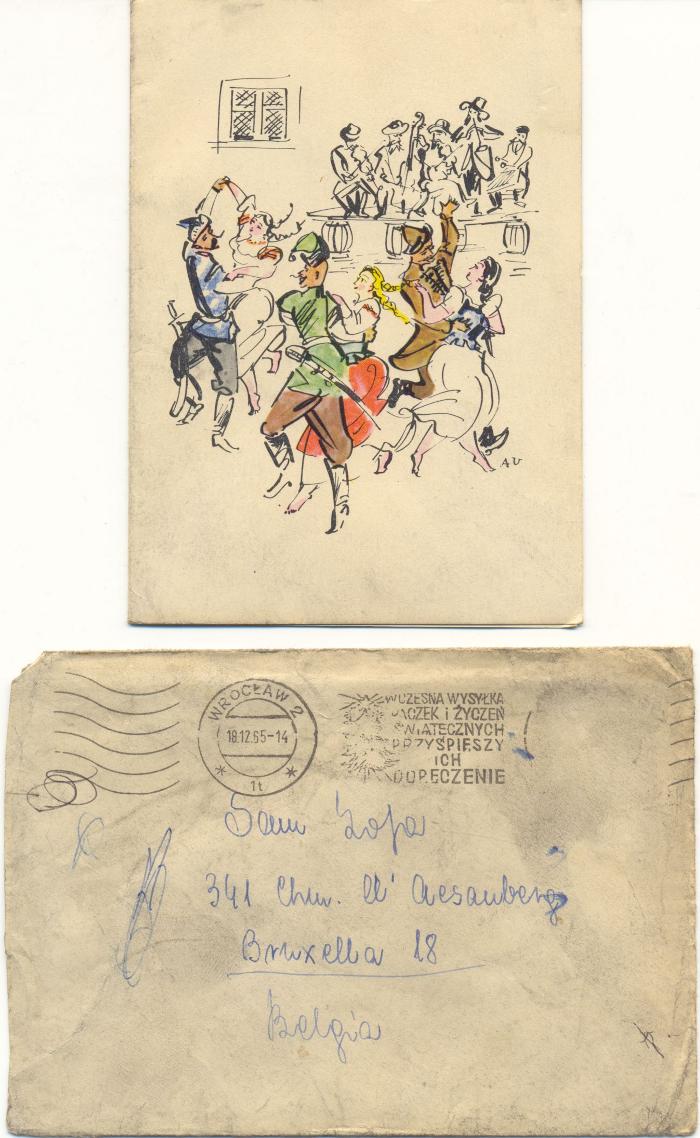 AU
WROCŁAW 2
18.12.65-14
1t
WCZESNA WYSYŁKA
PACZEK i ŻYCZEŃ
ŚWIATECZNYCH
PRZYSPIESZY
ICH
DORĘCZENIE
341 Chw. d'
Bruxella 18
Belgia